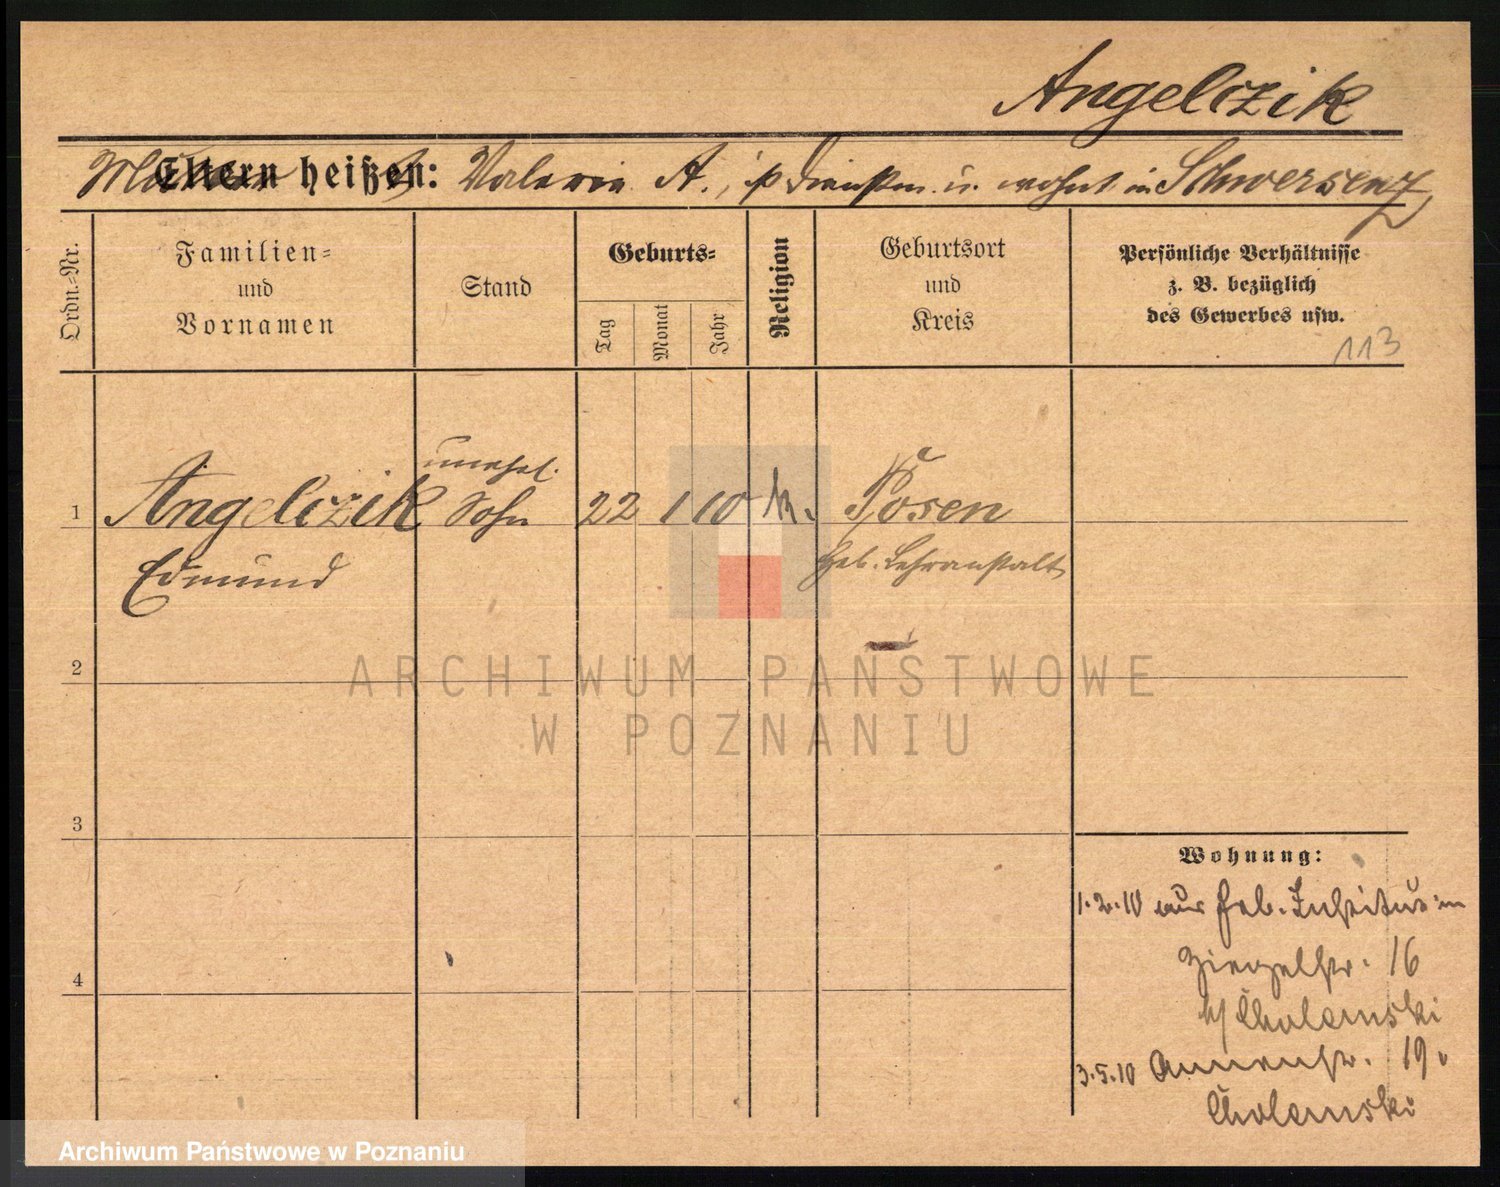 Angelczik
Eltern heißen: Valerie A., ist Dienstm. u. wohnt in Schwersenz
Ordn.=Nr.
Familien=
und
Vornamen
Stand
Geburts=
Tag
Monat
Jahr
Religion
Geburtsort
und
Kreis
Persönliche Verhältnisse
z. B. bezüglich
des Gewerbes usw.
113
unehel.
1 Angelczik Sohn 22 1 10 k. Posen
Edmund Heb. Lehranstalt
2
ARCHIWUM PAŃSTWOWE
W POZNANIU
3
Wohnung:
1.2.10 aus Heb. Institut in
4
Ziegelstr. 16
b/ Cholewski
3.5.10 Annenstr. 19
Cholewski
Archiwum Państwowe w Poznaniu